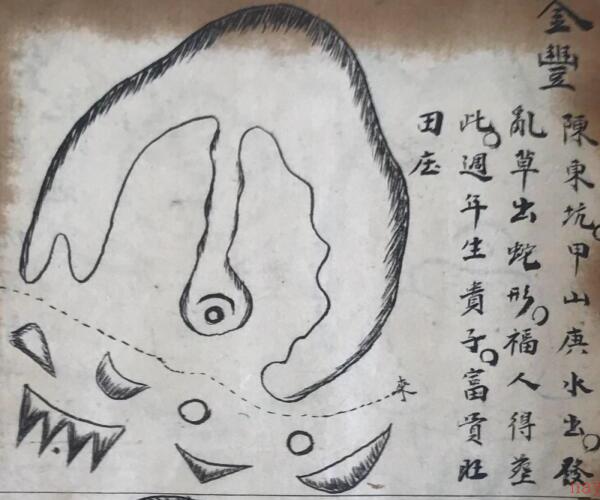 金豐
陳東坑。甲山庚水出。發
亂草出蛇形。福人得塟
此。週年生貴子。富貴旺
田庄
來